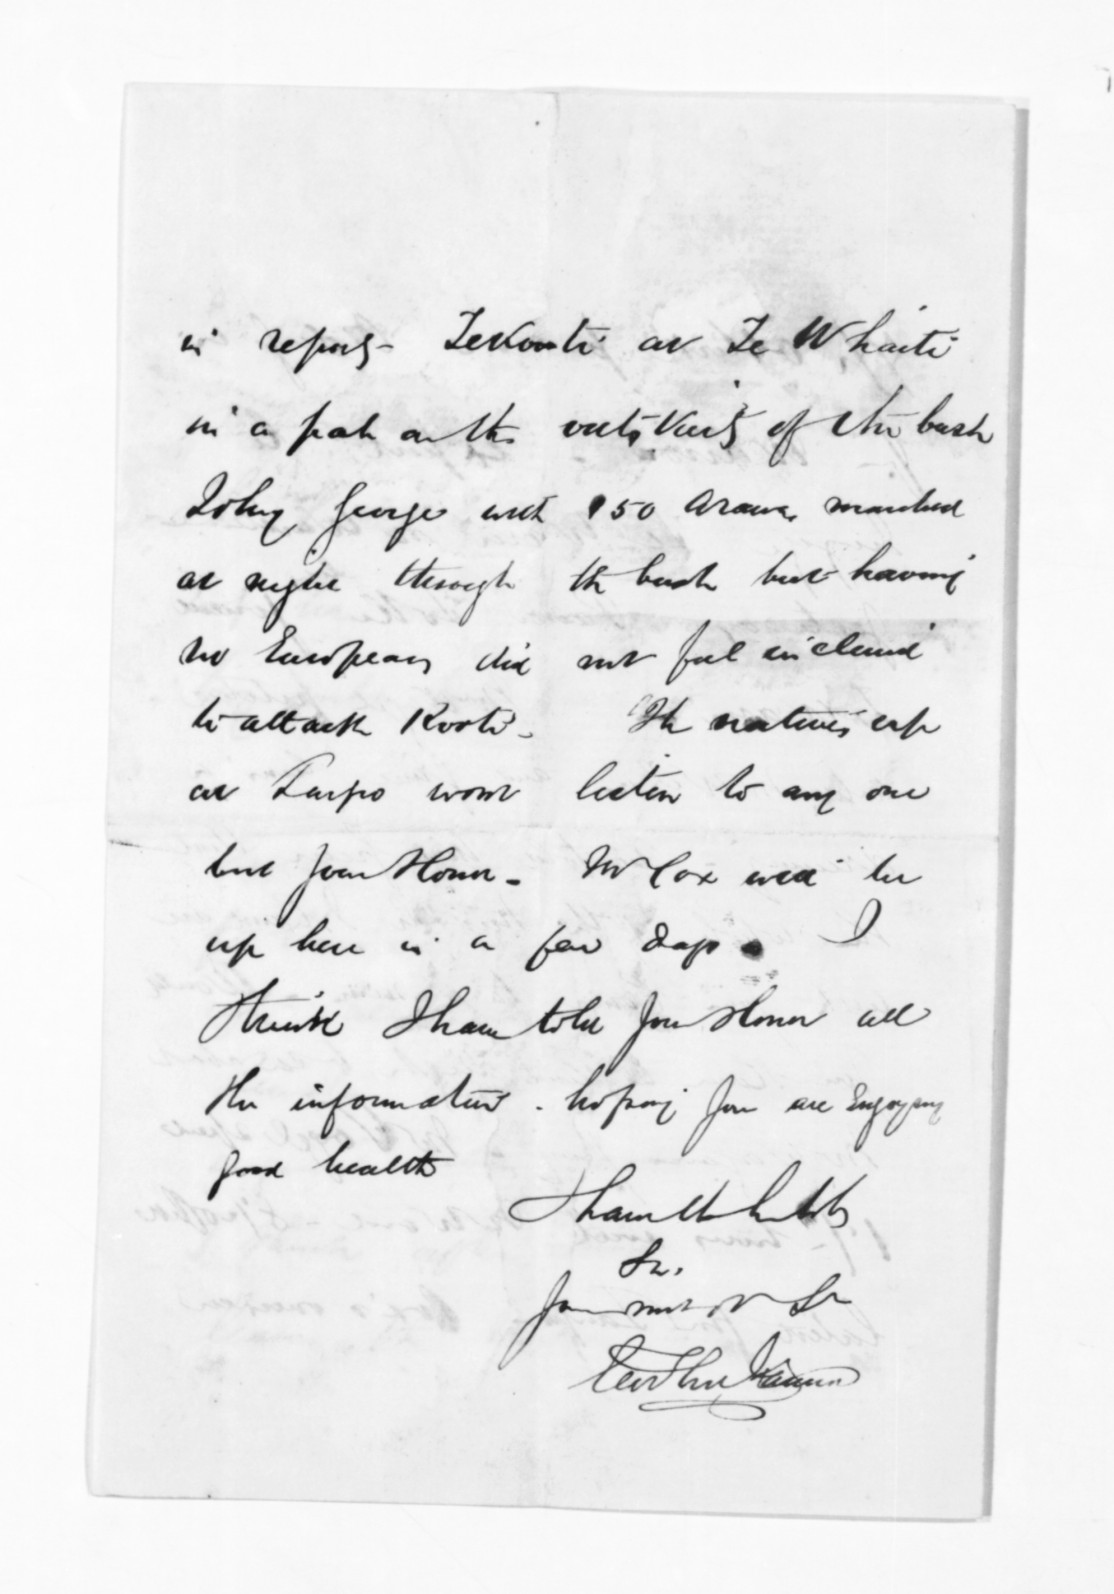 in report - TeKooti at Te Whaiti
in a pah on the outskirts of the bush
George with 150 Arawa marched
at night through the bush but having
no Europeans did not feel inclined
to attack Kooti - The natives up
at Taupo wont listen to any one
but Your Honor - Mr Cox will be
up here in a few days. I
think I have told Your Honor all
the information. hoping You are Enjoying
good health
I have the honor to be
Sir.
Your most ob Sr